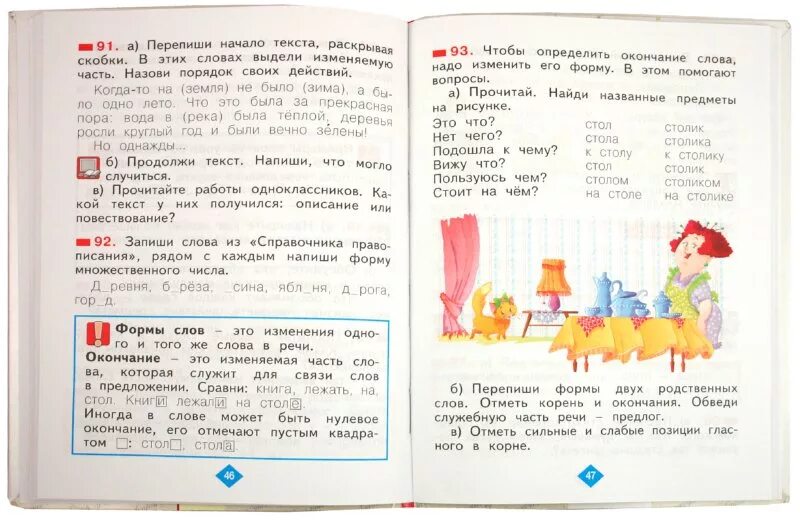 91. а) Перепиши начало текста, раскрывая
скобки. В этих словах выдели изменяемую
часть. Назови порядок своих действий.
Когда-то на (земля) не было (зима), а бы-
ло одно лето. Что это была за прекрасная
пора: вода в (река) была тёплой, деревья
росли круглый год и были вечно зелены!
Но однажды...
б) Продолжи текст. Напиши, что могло
случиться.
в) Прочитайте работы одноклассников. Ка-
кой текст у них получился: описание или
повествование?
92. Запиши слова из «Справочника право-
писания», рядом с каждым напиши форму
множественного числа.
Д_ревня, б_рёза, _сина, ябл_ня, д_рога,
гор_д.
Формы слов – это изменения одно-
го и того же слова в речи.
Окончание – это изменяемая часть сло-
ва, которая служит для связи слов
в предложении. Сравни: книга, лежать, на,
стол. Книги лежали на столе.
Иногда в слове может быть нулевое
окончание, его отмечают пустым квадра-
том □: стол□, стола.
46
93. Чтобы определить окончание слова,
надо изменить его форму. В этом помогают
вопросы.
а) Прочитай. Найди названные предметы
на рисунке.
Это что? стол столик
Нет чего? стола столика
Подошла к чему? к столу к столику
Вижу что? стол столик
Пользуюсь чем? столом столиком
Стоит на чём? на столе на столике
б) Перепиши формы двух родственных
слов. Отметь корень и окончания. Обведи
служебную часть речи – предлог.
в) Отметь сильные и слабые позиции глас-
ного в корне.
47